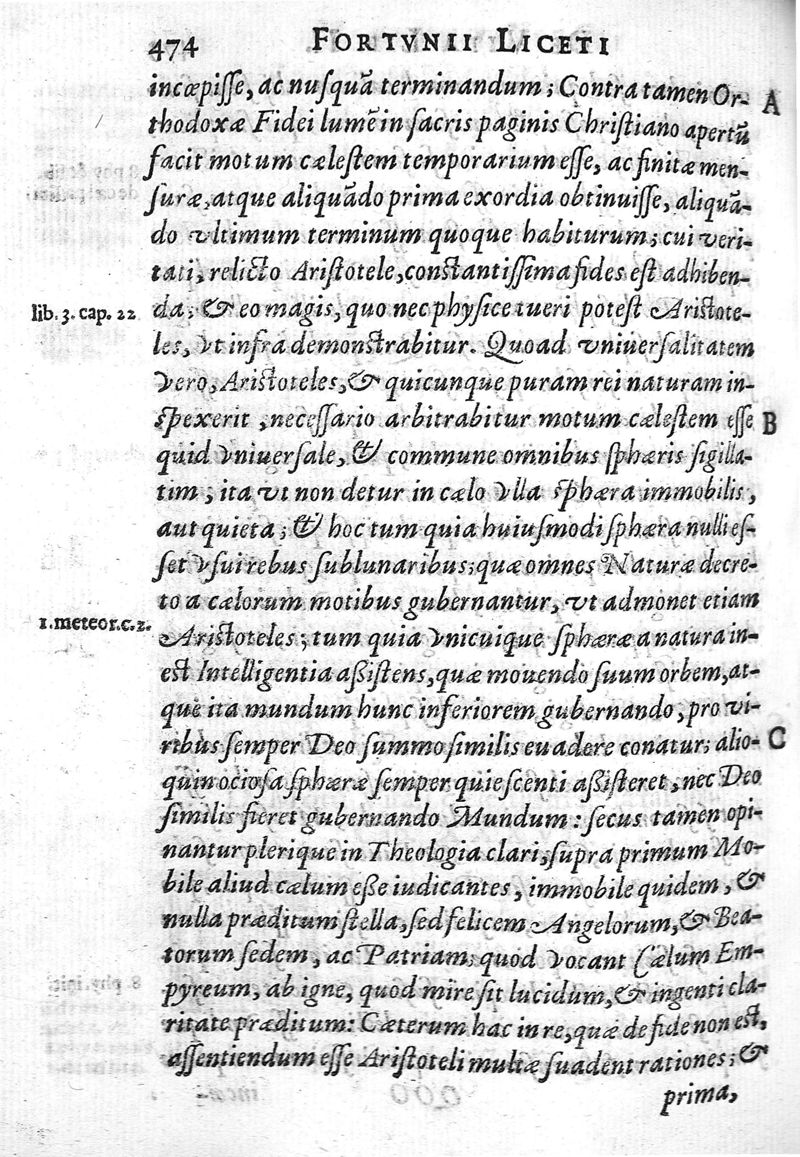 474 FORTVNII LICETI
incœpiſſe, ac nuſquã terminandum; Contra tamen Or- A
thodoxæ Fidei lumẽ in ſacris paginis Chriſtiano apertũ
facit motum cæleſtem temporarium eſſe, ac finitæ men-
ſuræ, atque aliquãdo prima exordia obtinuiſſe, aliquã-
do vltimum terminum quoque habiturum; cui veri-
tati, relicto Ariſtotele, conſtantiſſima fides eſt adhiben-
lib. 3. cap. 22 da; & eo magis, quo nec phyſice tueri poteſt Ariſtote-
les, vt infra demonſtrabitur. Quoad vniuerſalitatem
vero, Ariſtoteles, & quicunque puram rei naturam in-
ſpexerit, neceſſario arbitrabitur motum cæleſtem eſſe B
quid vniuerſale, & commune omnibus ſphæris ſigilla-
tim; ita vt non detur in cælo vlla ſphæra immobilis,
aut quieta; & hoc tum quia huiuſmodi ſphæra nulli eſ-
ſet vſui rebus ſublunaribus; quæ omnes Naturæ decre-
to a cælorum motibus gubernantur, vt admonet etiam
1. meteor. c. 2. Ariſtoteles; tum quia vnicuique ſphæræ a natura in-
eſt Intelligentia aßiſtens, quæ mouendo ſuum orbem, at-
que ita mundum hunc inferiorem gubernando, pro vi-
ribus ſemper Deo ſummo ſimilis euadere conatur; alio- C
quin ocioſa ſphæræ ſemper quieſcenti aßiſteret, nec Deo
ſimilis fieret gubernando Mundum: ſecus tamen opi-
nantur plerique in Theologia clari, ſupra primum Mo-
bile aliud cælum eße iudicantes, immobile quidem, &
nulla præditum ſtella, ſed felicem Angelorum, & Bea-
torum ſedem, ac Patriam; quod vocant Cælum Em-
pyreum, ab igne, quod mire ſit lucidum, & ingenti cla-
ritate præditum: Cæterum hac in re, quæ de fide non eſt,
aſſentiendum eſſe Ariſtoteli multæ ſuadent rationes; &
prima,